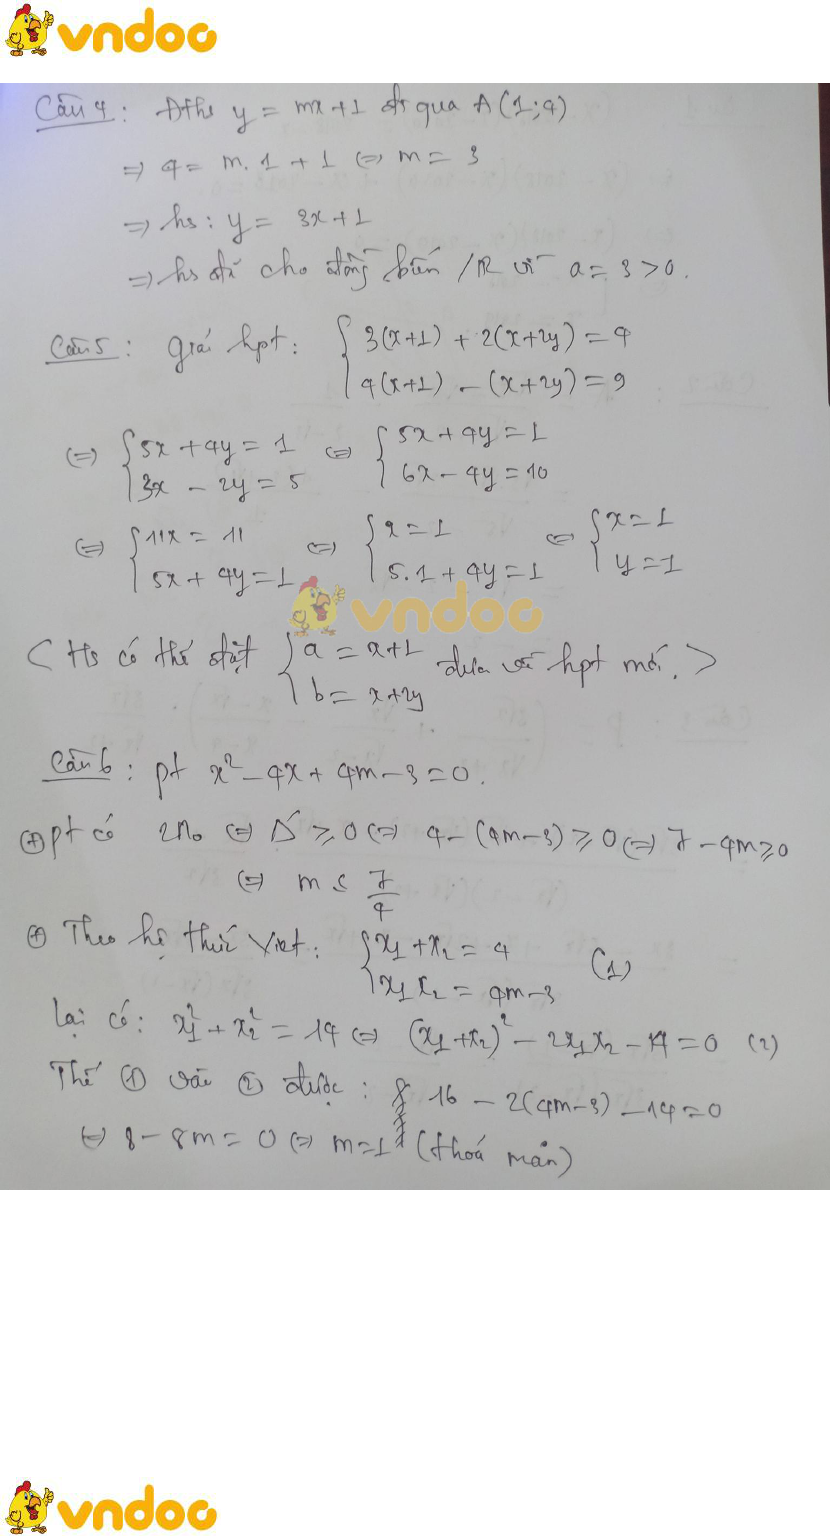 vndoc
Câu 4: Đths y = mx+1 đi qua A(1;4)
=> 4 = m.1 + 1 <=> m = 3
=> hs: y = 3x+1
=> hs đã cho đồng biến /R vì a = 3 > 0.
Câu 5: Giải hpt: { 3(x+1) + 2(x+2y) = 4
4(x+1) - (x+2y) = 9
<=> { 5x + 4y = 1 <=> { 5x + 4y = 1
3x - 2y = 5 6x - 4y = 10
<=> { 11x = 11 <=> { x = 1 <=> { x = 1
5x + 4y = 1 5.1 + 4y = 1 y = -1
vndoc
< Hs có thể đặt { a = x+1 đưa về hpt mới. >
b = x+2y
Câu 6: pt x² - 4x + 4m - 3 = 0.
⊕ pt có 2 no <=> Δ' ≥ 0 <=> 4 - (4m-3) ≥ 0 <=> 7 - 4m ≥ 0
<=> m ≤ 7/4
⊕ Theo hệ thức Viet: { x₁ + x₂ = 4 (1)
x₁x₂ = 4m-3
Lại có: x₁² + x₂² = 14 <=> (x₁+x₂)² - 2x₁x₂ - 14 = 0 (2)
Thế ① vào ② được: 16 - 2(4m-3) - 14 = 0
<=> 8 - 8m = 0 <=> m = 1 (thoả mãn)
vndoc